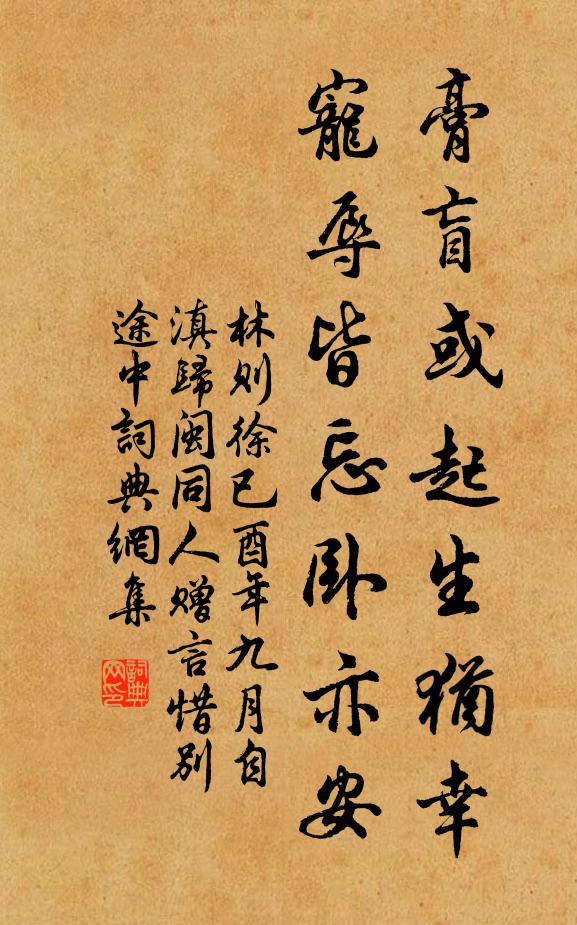 膏肓或起生猶幸
寵辱皆忘卧亦安
林则徐已酉年九月自
滇歸閩同人贈言惜别
途中詞典網集
詞典网印